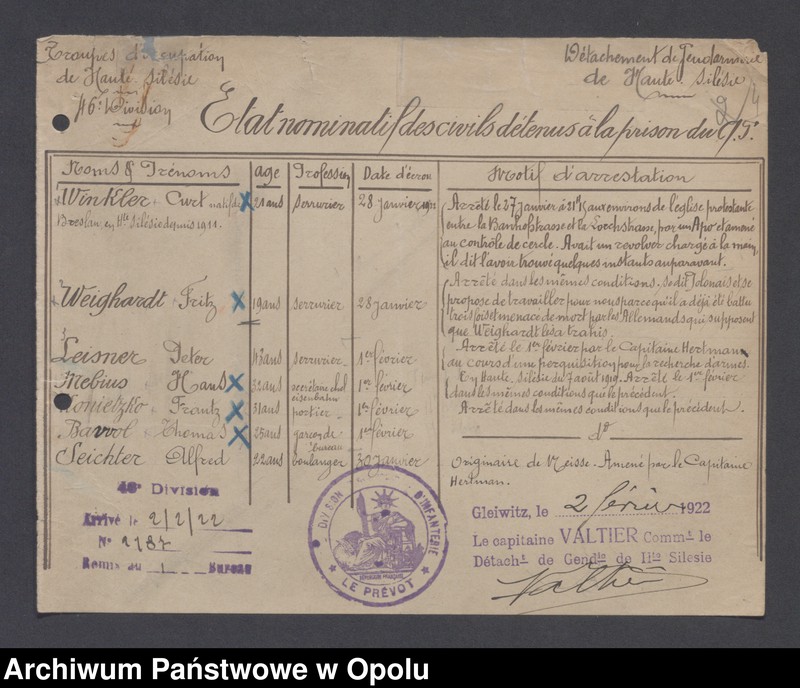 Troupes d'occupation
de Haute Silésie
46e Division
Détachement de Gendarmerie
de Haute Silésie
Etat nominatif des civils détenus à la prison du
Noms & Prénoms
age
Profession
Date d'écrou
Motif d'arrestation
Winkler Curt natif de 21 ans serrurier 28 janvier 1922
Breslau, en Hte Silésie depuis 1911.
Arrêté le 27 janvier à 21h aux environs de l'église protestante
entre la Banhofstrasse et la Loechstrasse, par un Apo et amené
au contrôle de cercle. Avait un revolver chargé à la main,
il dit l'avoir trouvé quelques instants auparavant.
Weighardt Fritz 19 ans serrurier 28 janvier
Arrêté dans les mêmes conditions, se dit Polonais et se
propose de travailler pour nous parce qu'il a déjà été battu
trois fois et menacé de mort par les Allemands qui supposent
que Weighardt les a trahis.
Leisner Peter 43 ans serrurier 1er février
Arrêté le 1er février par le Capitaine Hertman
au cours d'une perquisition pour la recherche d'armes.
Mebius Hans 32 ans secrétaire chef eisenbahn 1er février
En Haute Silésie du 7 août 1919. Arrêté le 1er février
dans les mêmes conditions que le précédent.
Konietzko Frantz 31 ans portier 1er février
Arrêté dans les mêmes conditions que le précédent.
Bavrol Thomas 25 ans garçon de bureau 1er février
do
Seichter Alfred 22 ans boulanger 30 janvier
Originaire de Neisse. Amené par le Capitaine
Hertman.
46e Division
Arrivé le 2/2/22
No 2187
Remis au Bureau
DIVISION D'INFANTERIE
LE PRÉVOT
Gleiwitz, le 2 février 1922
Le capitaine VALTIER Commt le
Détacht de Gendie de Hte Silesie
Valtier
Archiwum Państwowe w Opolu